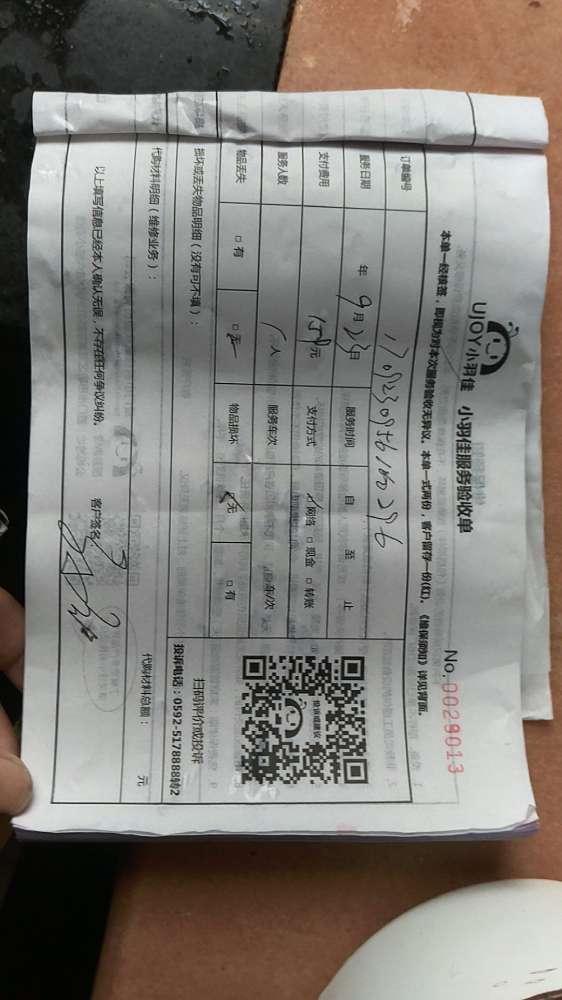 UJOY小羽佳 小羽佳服务验收单
No. 0029013
本单一经核签，即视为对本次服务验收无异议。本单一式两份，客户留存一份(红)。《维保须知》详见背面。
订单编号
服务日期 年 9月23日 服务时间 自 至 止
支付费用 元 支付方式 网络 □ 现金 □ 转账
服务人数 人 服务车次 车/次
物品丢失 □ 有 □ 无 物品损坏 □ 无 □ 有
投诉或建议
扫码评价或投诉
投诉电话：0592-5178888转2
损坏或丢失物品明细（没有可不填）：
代购材料明细（维修业务）： 代购材料总额： 元
以上填写信息已经本人确认无误，不存在任何争议纠纷。 客户签名：